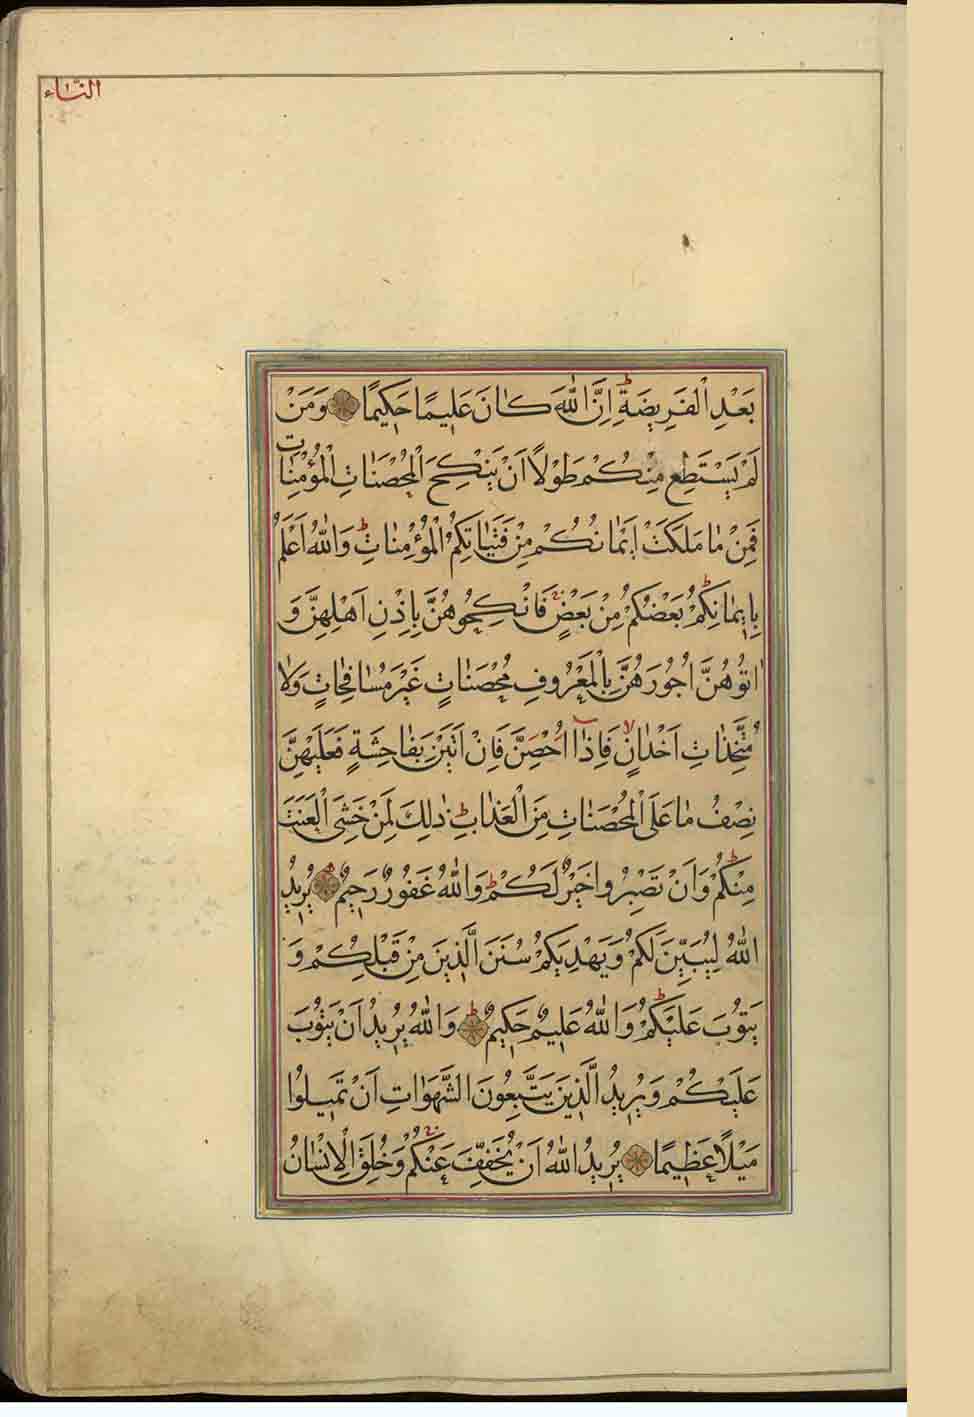 النساء
بَعْدِ الْفَرِيضَةِ اِنَّ اللّٰهَ كَانَ عَلِيمًا حَكِيمًا وَمَنْ
لَمْ يَسْتَطِعْ مِنْكُمْ طَوْلًا اَنْ يَنْكِحَ الْمُحْصَنَاتِ الْمُؤْمِنَاتِ
فَمِنْ مَا مَلَكَتْ اَيْمَانُكُمْ مِنْ فَتَيَاتِكُمُ الْمُؤْمِنَاتِ وَاللّٰهُ اَعْلَمُ
بِاِيمَانِكُمْ بَعْضُكُمْ مِنْ بَعْضٍ فَانْكِحُوهُنَّ بِاِذْنِ اَهْلِهِنَّ وَ
اٰتُوهُنَّ اُجُورَهُنَّ بِالْمَعْرُوفِ مُحْصَنَاتٍ غَيْرَ مُسَافِحَاتٍ وَلَا
مُتَّخِذَاتِ اَخْدَانٍ فَاِذَا اُحْصِنَّ فَاِنْ اَتَيْنَ بِفَاحِشَةٍ فَعَلَيْهِنَّ
نِصْفُ مَا عَلَى الْمُحْصَنَاتِ مِنَ الْعَذَابِ ذٰلِكَ لِمَنْ خَشِيَ الْعَنَتَ
مِنْكُمْ وَاَنْ تَصْبِرُوا خَيْرٌ لَكُمْ وَاللّٰهُ غَفُورٌ رَحِيمٌ يُرِيدُ
اللّٰهُ لِيُبَيِّنَ لَكُمْ وَيَهْدِيَكُمْ سُنَنَ الَّذِينَ مِنْ قَبْلِكُمْ وَ
يَتُوبَ عَلَيْكُمْ وَاللّٰهُ عَلِيمٌ حَكِيمٌ وَاللّٰهُ يُرِيدُ اَنْ يَتُوبَ
عَلَيْكُمْ وَيُرِيدُ الَّذِينَ يَتَّبِعُونَ الشَّهَوَاتِ اَنْ تَمِيلُوا
مَيْلًا عَظِيمًا يُرِيدُ اللّٰهُ اَنْ يُخَفِّفَ عَنْكُمْ وَخُلِقَ الْاِنْسَانُ